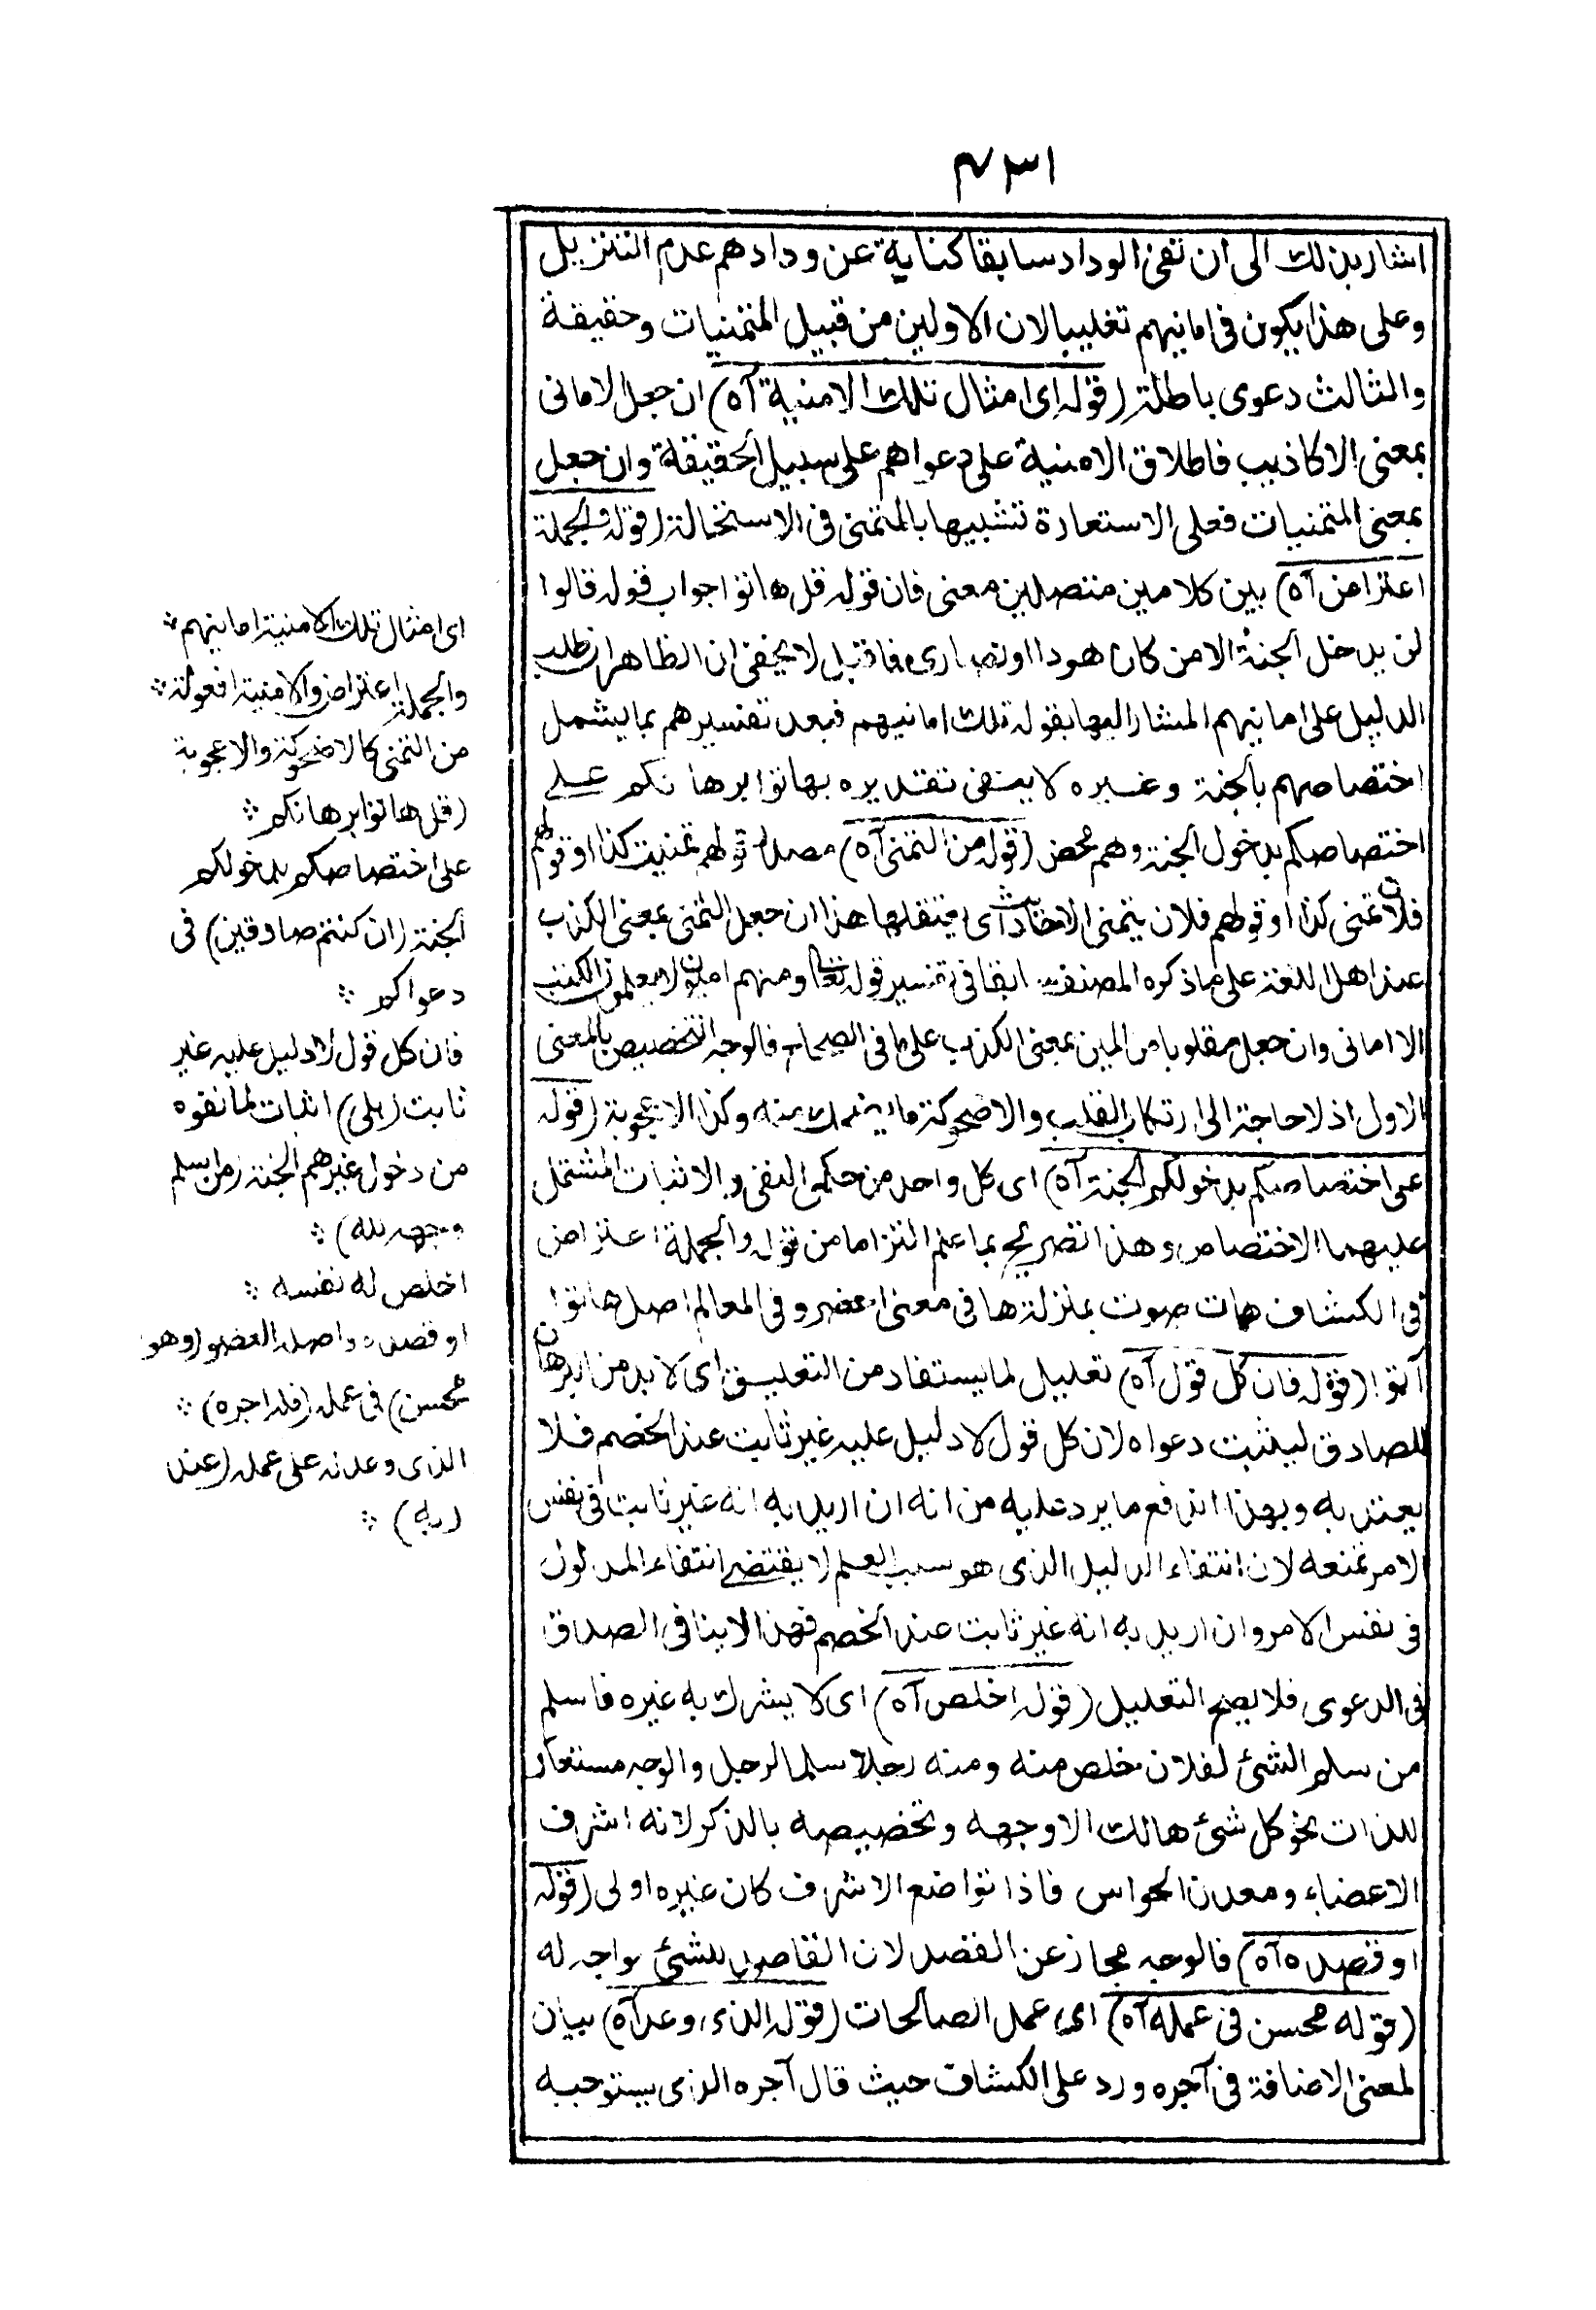 ٤٣١
اشار بذلك الى ان نفى الوداد سابقا كناية عن ودادهم عدم التنزيل
وعلى هذا يكون فى امانيهم تغليبا لان الاولين من قبيل المتمنيات وحقيقة
والثالث دعوى باطلة (قوله اى امثال تلك الامنية آه) ان جعل الامانى
بمعنى الاكاذيب فاطلاق الامنية على دعواهم على سبيل الحقيقة وان جعل
بمعنى المتمنيات فعلى الاستعارة تشبيها بالمتمنى فى الاستحالة (قوله والجملة
اعتراض آه) بين كلامين متصلين معنى فان قوله قل هاتوا جواب قوله قالوا
لن يدخل الجنة الا من كان هودا او نصارى فما قيل لا يخفى ان الظاهر ان طلب
الدليل على امانيهم المشار اليها بقوله تلك امانيهم فبعد تفسيرهم بما يشمل
اختصاصهم بالجنة وغيره لا ينبغى تقديره بهاتوا برهانكم على
اختصاصكم بدخول الجنة وهم محض (قوله من التمنى آه) مصدر قولهم تمنيت كذا او قولهم
فلان تمنى كذا او قولهم فلان يتمنى الاحاديث اى يفتعلها هذا ان جعل التمنى بمعنى الكذب
عند اهل اللغة على ما ذكره المصنف سابقا فى تفسير قوله تعالى ومنهم اميون لا يعلمون الكتب
الا امانى وان جعل مقلوبا من المين بمعنى الكذب على ما فى الصحاح فالوجه التخصيص بالمعنى
الاول اذ لا حاجة الى ارتكاب القلب والاضحوكة ما يضحك منه وكذا الاعجوبة (قوله
على اختصاصكم بدخولكم الجنة آه) اى كل واحد من حكمى النفى والاثبات المشتمل
عليهما الاختصاص وهذا تصريح بما علم التزاما من قوله والجملة اعتراض
فى الكشاف هات صوت بمنزلة ها فى معنى احضر وفى المعالم اصل هاتوا
آتوا (قوله فان كل قول آه) تعليل لما يستفاد من التعليق اى لا بد من البرهان
للصادق ليثبت دعواه لان كل قول لا دليل عليه غير ثابت عند الخصم فلا
يعتد به وبهذا اندفع ما يرد عليه من انه ان اريد به انه غير ثابت فى نفس
الامر نمنعه لان انتفاء الدليل الذى هو سبب العلم لا يقتضى انتفاء المدلول
فى نفس الامر وان اريد به انه غير ثابت عند الخصم فهذا لا ينافى الصدق
فى الدعوى فلا يصح التعليل (قوله اخلص آه) اى لا يشرك به غيره فاسلم
من سلم الشئ لفلان خلص منه ومنه رجلا سلما لرجل والوجه مستعار
للذات نحو كل شئ هالك الا وجهه وتخصيصه بالذكر لانه اشرف
الاعضاء ومعدن الحواس فاذا تواضع الاشرف كان غيره اولى (قوله
او قصده آه) فالوجه مجاز عن القصد لان القاصد للشئ يواجه له
(قوله محسن فى عمله آه) اى عمل الصالحات (قوله الذى وعد آه) بيان
لمعنى الاضافة فى آجره ورد على الكشاف حيث قال آجره الذى يستوجبه
اى امثال تلك الامنية امانيهم
والجملة اعتراض والامنية افعولة
من التمنى كالاضحوكة والاعجوبة
(قل هاتوا برهانكم
على اختصاصكم بدخولكم
الجنة (ان كنتم صادقين) فى
دعواكم
فان كل قول لا دليل عليه غير
ثابت (بلى) اثبات لما نفوه
من دخول غيرهم الجنة (من اسلم
وجهه لله)
اخلص له نفسه
او قصده واصله العضو (وهو
محسن) فى عمله (فله اجره)
الذى وعد له على عمله (عند
ربه)